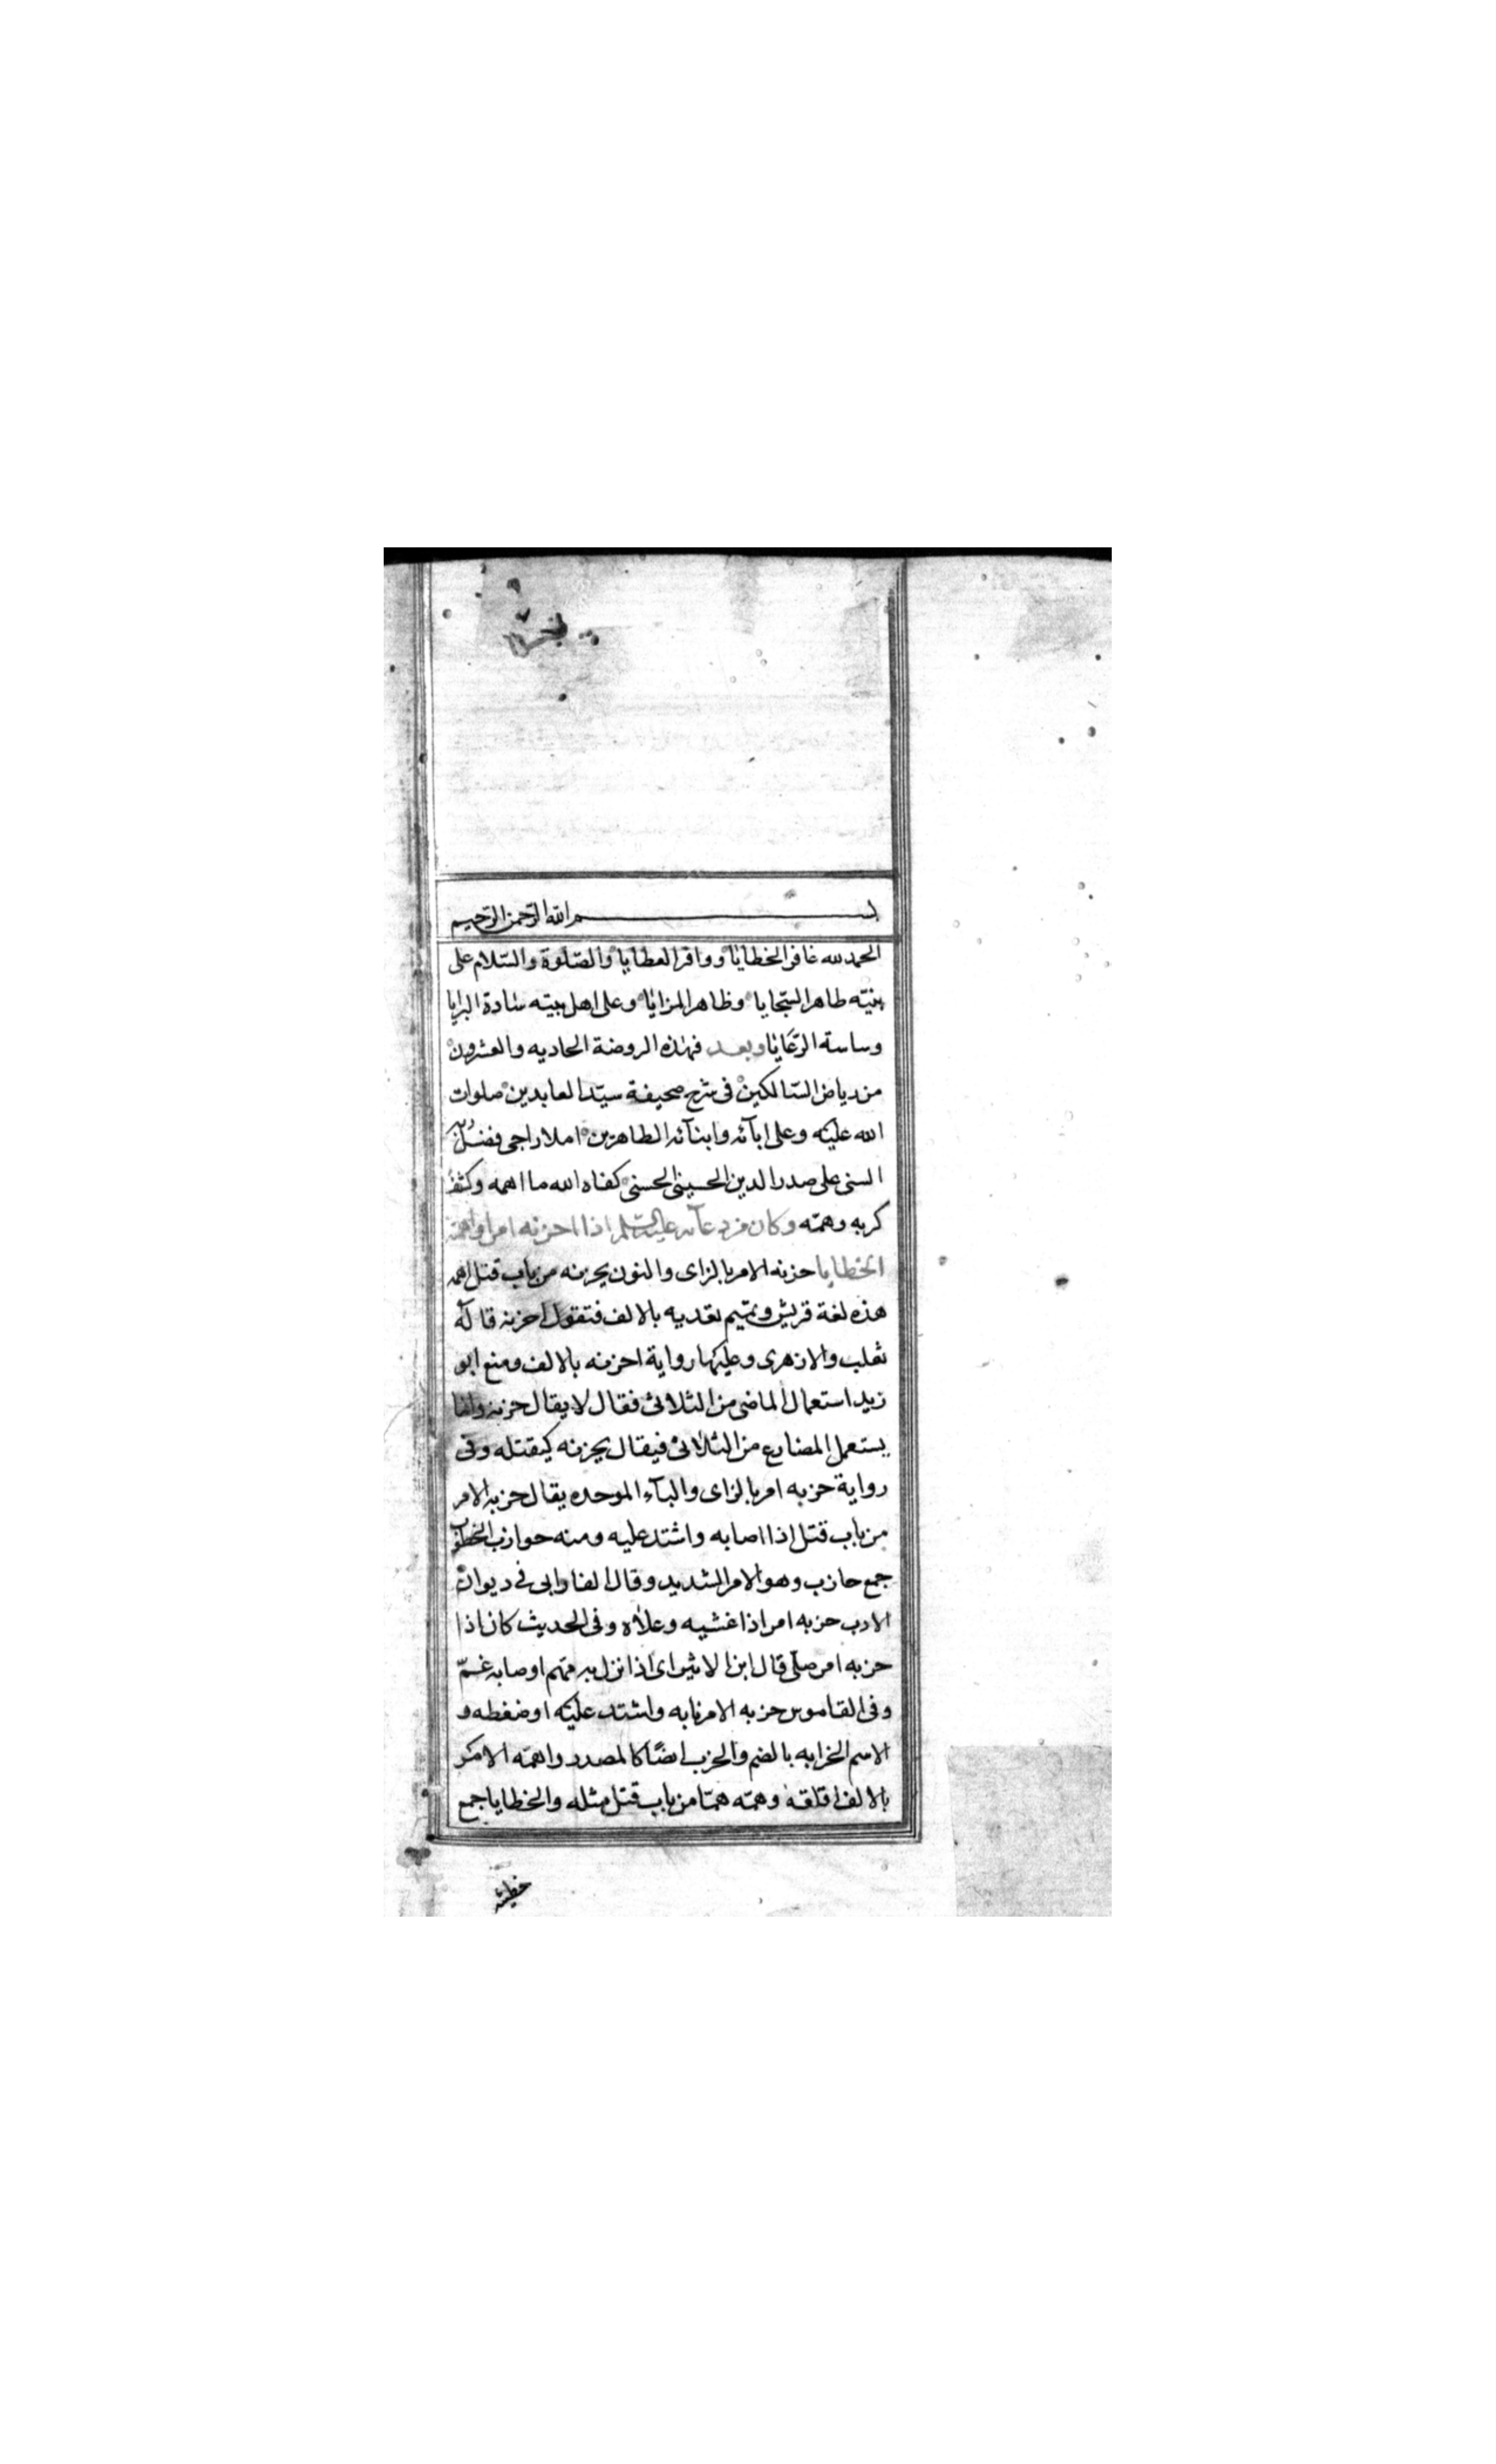 بسم الله الرحمن الرحيم
الحمد لله غافر الخطايا ووافر العطايا والصلوة والسلام على
نبيّه طاهر السّجايا وظاهر المزايا وعلى اهل بيته سادة البرايا
وساسة الرّعايا وبعد فهذه الروضة الحاديه والعشرون
من رياض السّالكين فى شرح صحيفة سيّد العابدين صلوات
الله عليه وعلى ابآئه وابنآئه الطاهرين املا راجى فضل ربّه
السنى على صدر الدين الحسينى الحسنى كفاه الله ما اهمه وكشف
كربه وهمّه وكان من دعآئه عليه السّلم اذا احزنه امر واهمّته
الخطايا حزنه الامر بالزاى والنون يحزنه من باب قتل اهمّه
هذه لغة قريش وتميم تعديه بالالف فتقول احزنه قاله
ثعلب والازهرى وعليها رواية احزنه بالالف ومنع ابو
زيد استعمال الماضى من الثلاثى فقال لا يقال حزنه وانما
يستعمل المضارع من الثلاثى فيقال يحزنه كيقتله وفى
رواية حزبه امر بالزاى والبآء الموحده يقال حزبه الامر
من باب قتل اذا اصابه واشتد عليه ومنه حوازب الخطوب
جمع حازب وهو الامر الشديد وقال الفارابى فى ديوان
الادب حزبه امر اذا غشيه وعلاه وفى الحديث كان اذا
حزبه امر صلّى قال ابن الاثير اى اذا نزل به مهّم او صابه غمّ
وفى القاموس حزبه الامر نابه واشتد عليه او ضغطه و
الاسم الحزابه بالضم والحزب ايضًا كالمصدر واهمّه الامر
بالالف اقلقه وهمّه همّا من باب قتل مثله والخطايا جمع
خطيئه